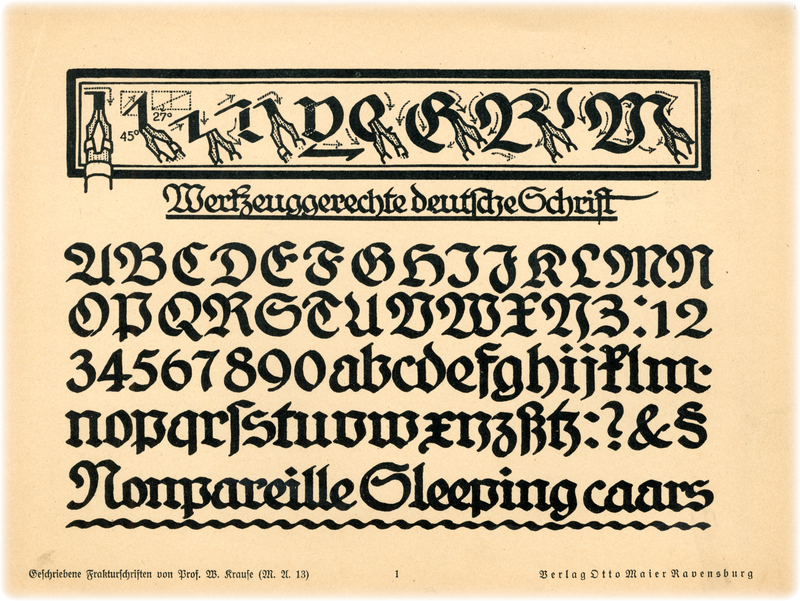 45° 27°
Werkzeuggerechte deutſche Schrift
ABCDEFGHIJKLMN
OPQRSTUVWXYZ:12
34567890abcdefghijklm·
nopqrſstuvwxyzßtz:?&§
Nonpareille Sleeping caars
Geſchriebene Frakturſchriften von Prof. W. Krauſe (M. A. 13) 1 Verlag Otto Maier Ravensburg